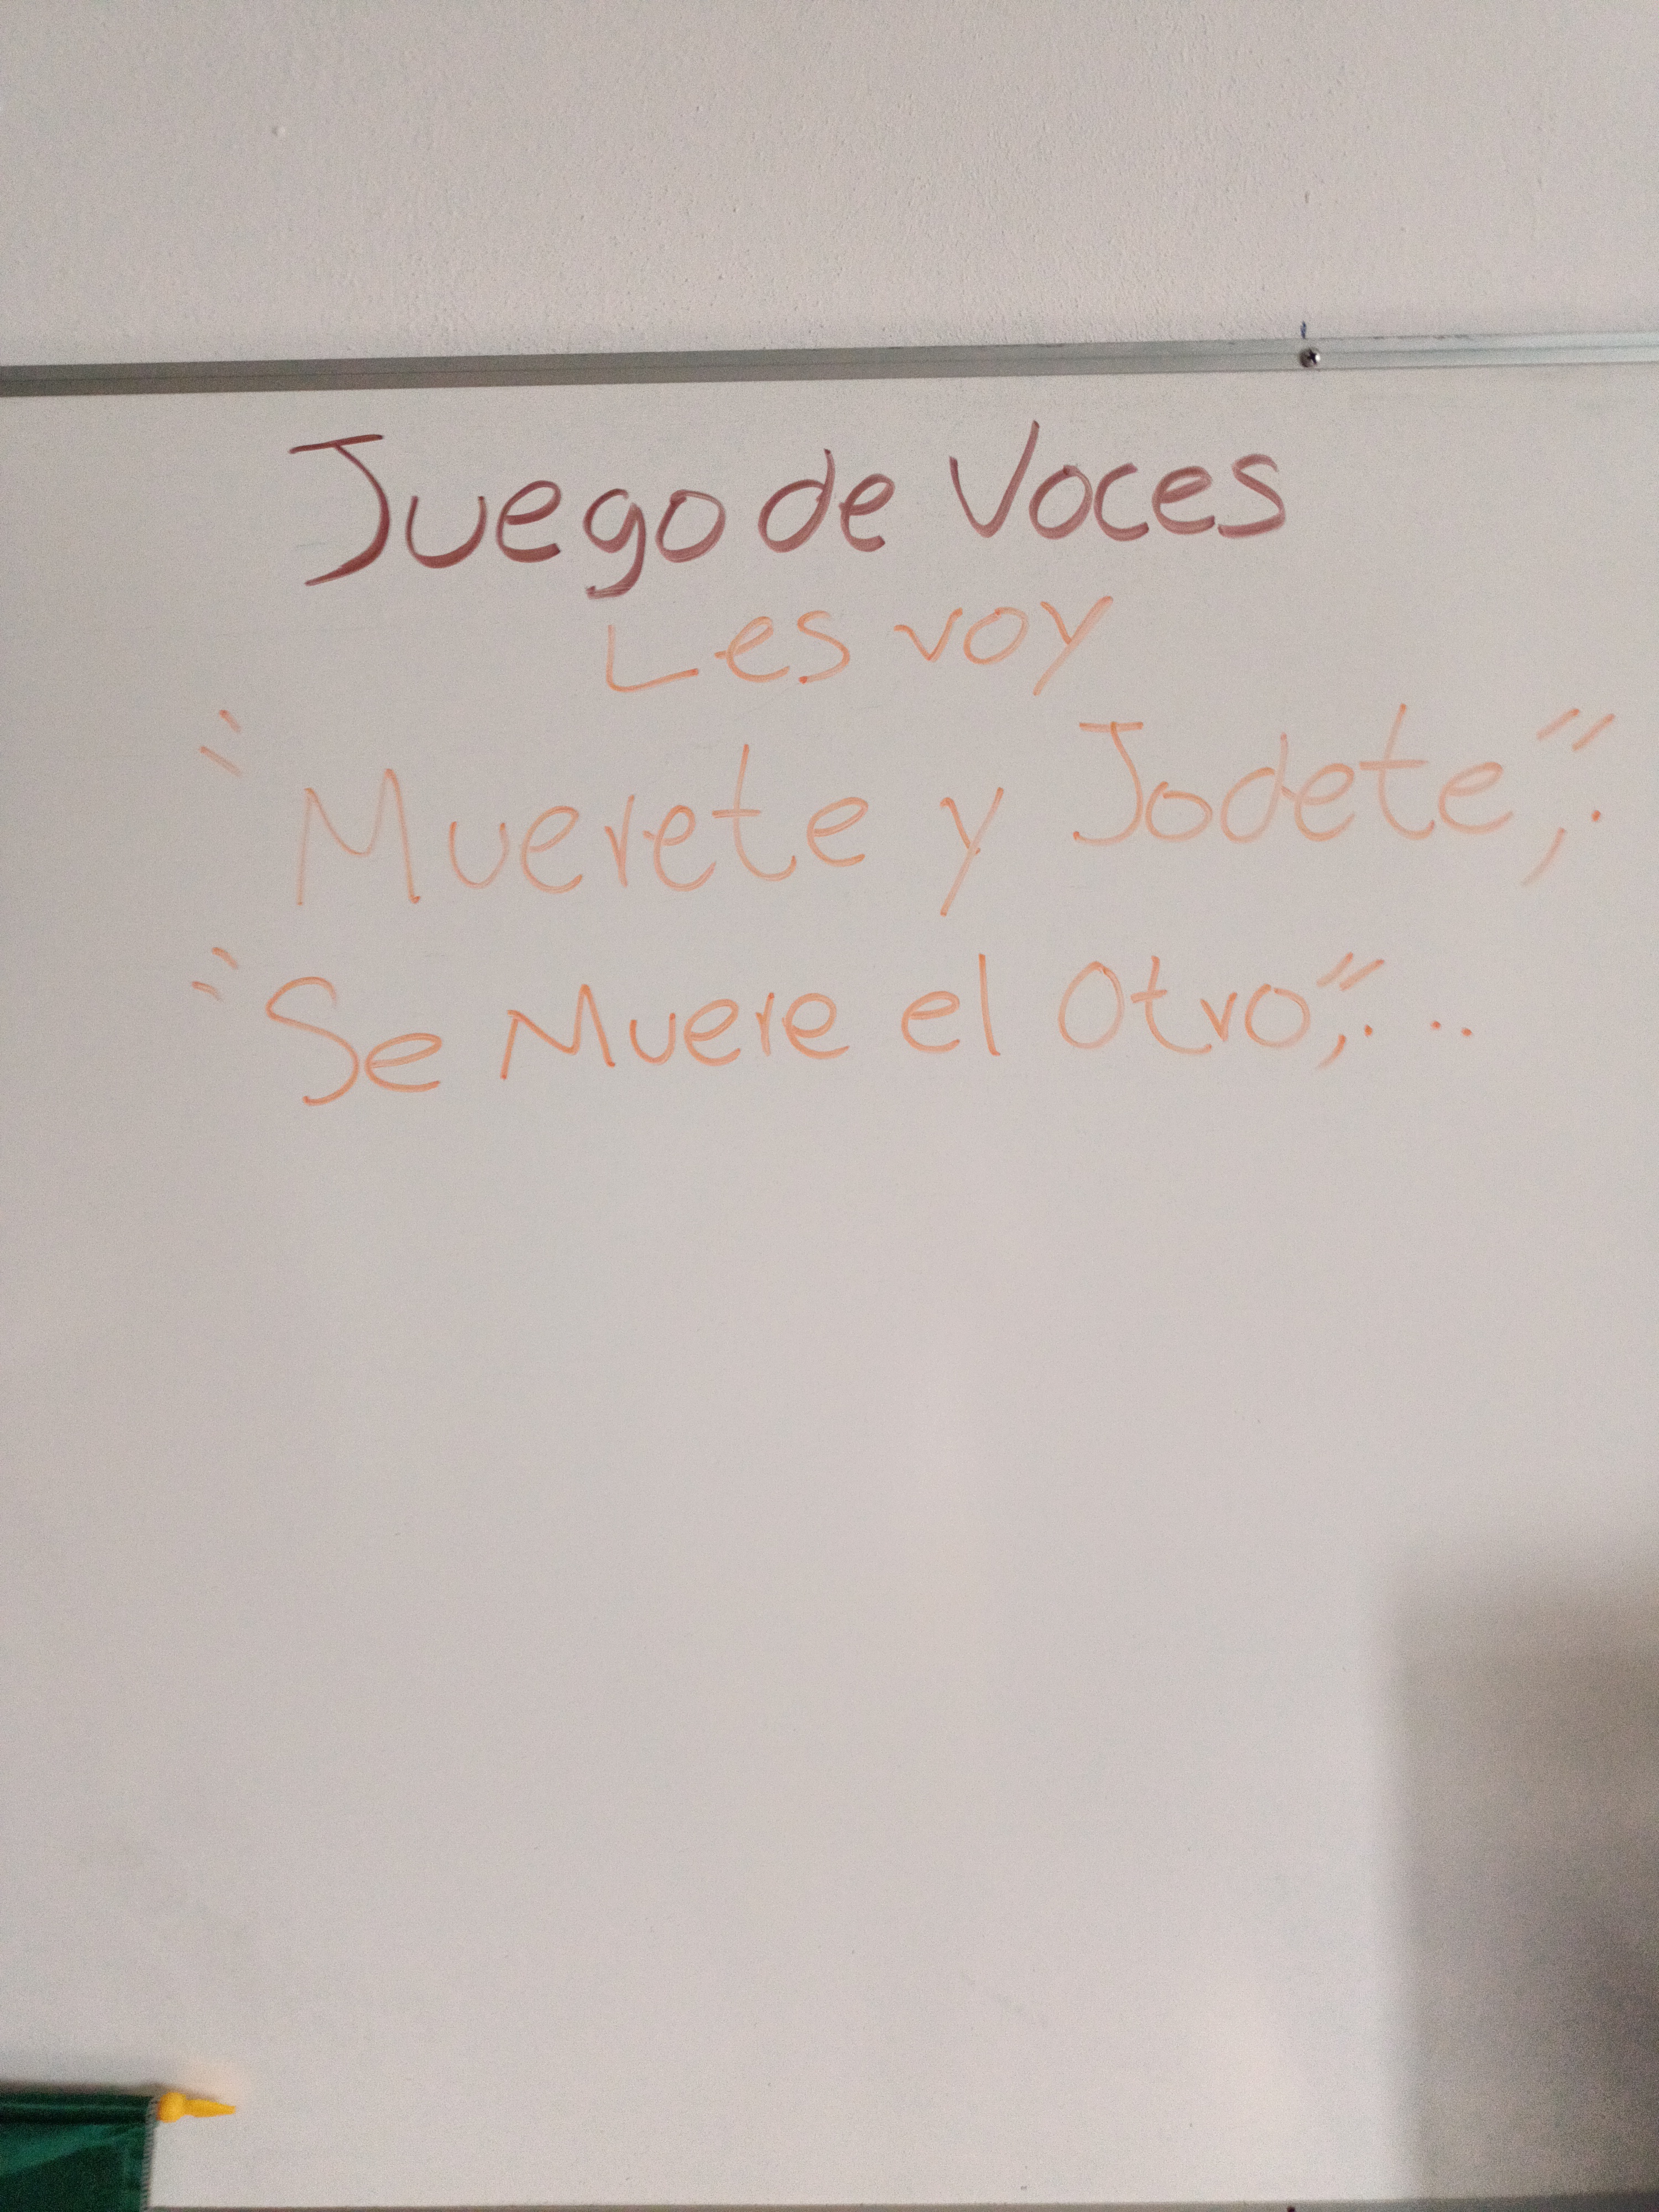 Juego de Voces
Les voy
"Muerete y Jodete",.
"Se Muere el Otro",. ..